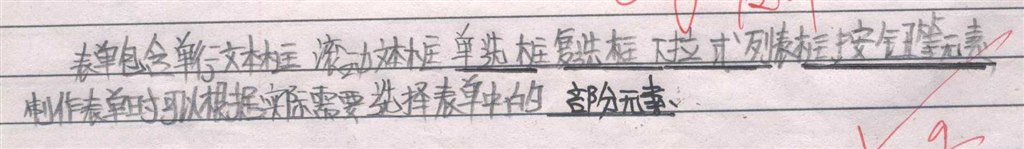 表单包含单行文本框 滚动文本框 单选框 复选框 下拉式列表框 按钮等元素
制作表单时可以根据实际需要选择表单中的 部分元素、